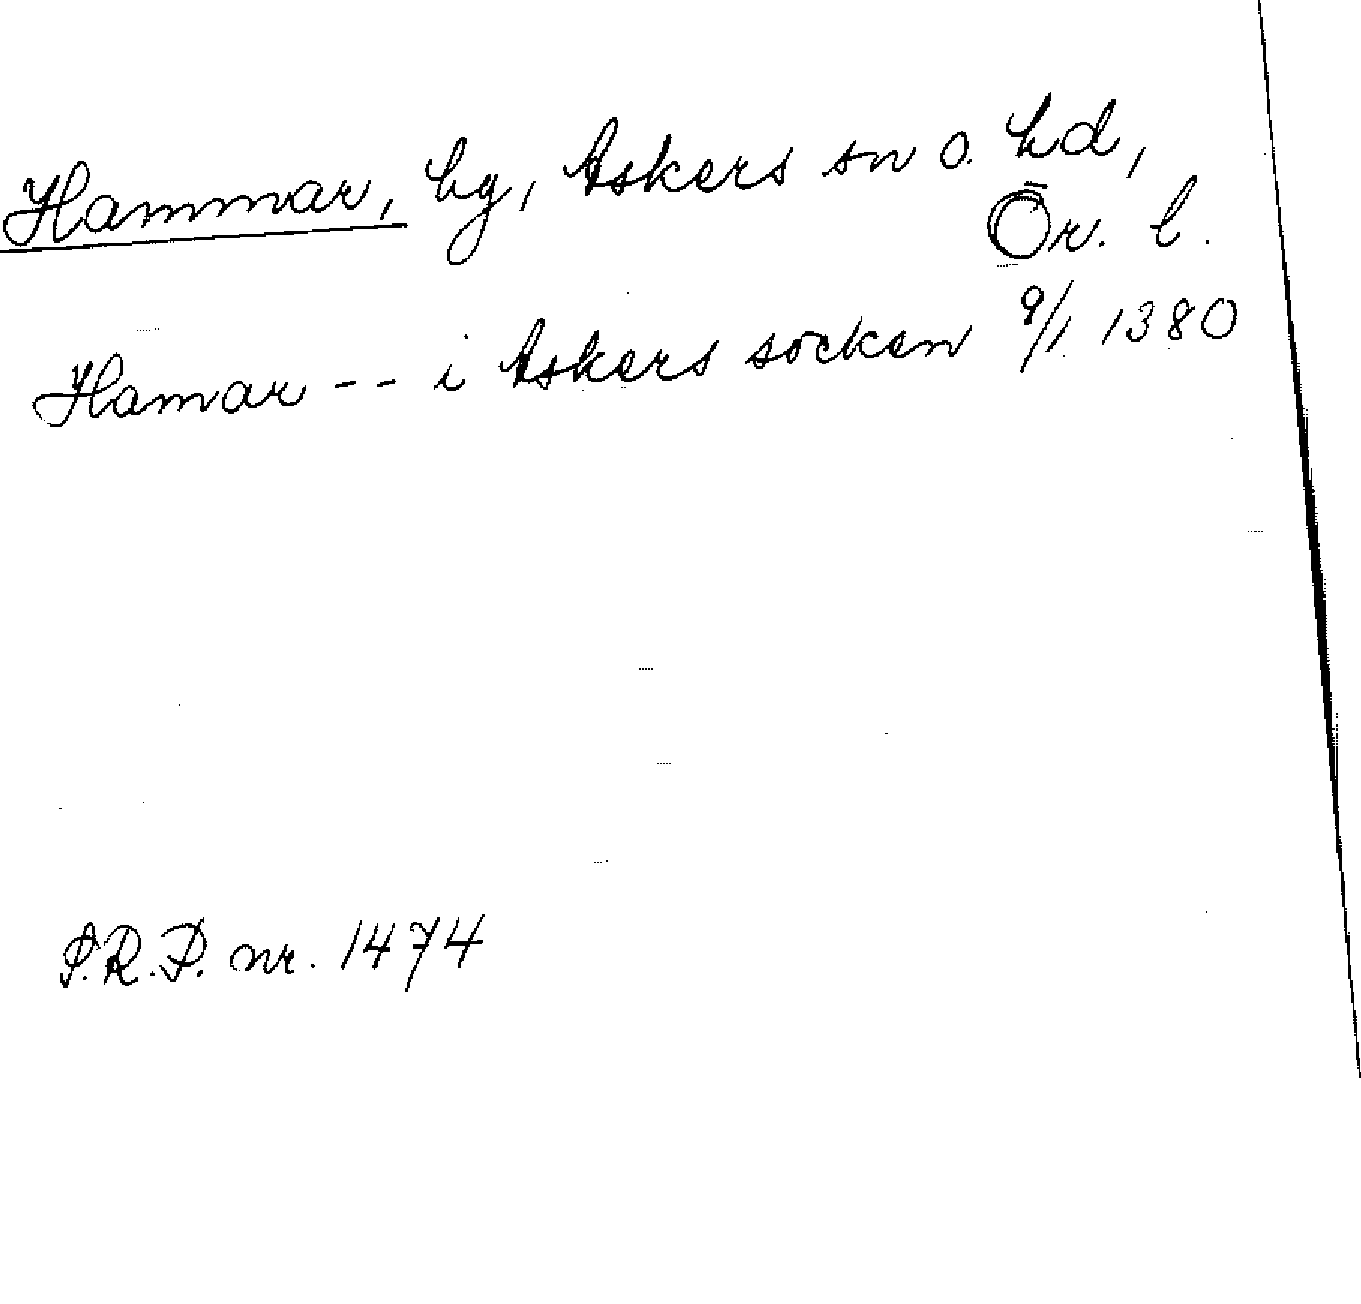 Hammar, by, Askers sn o. hd,
Ör. l.
Hamar -- i Askers socken 9/1 1380
S.R.P. nr. 1474